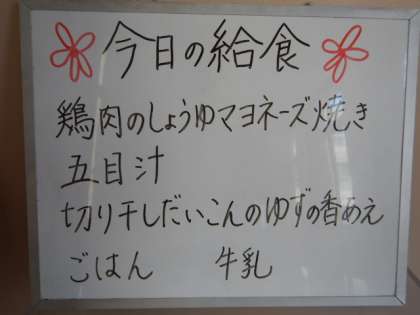 今日の給食
鶏肉のしょうゆマヨネーズ焼き
五目汁
切り干しだいこんのゆずの香あえ
ごはん 牛乳